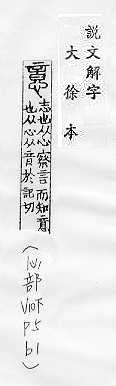 說文解字
大徐本
意
志也从心察言而知意
也从心从音於記切
(心部 V10下 P5 b1)